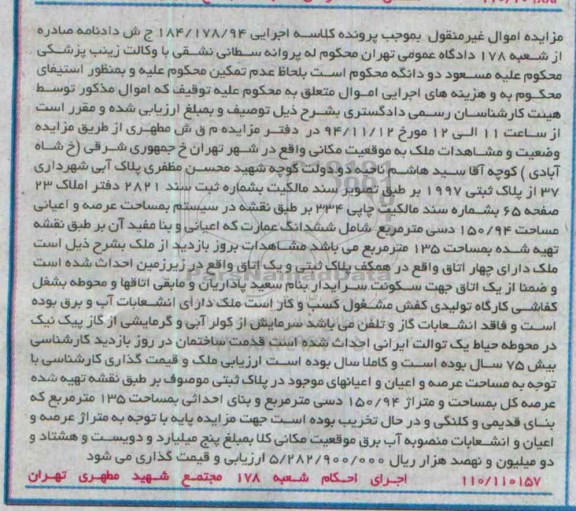 مزایده اموال غیرمنقول بموجب پرونده کلاسه اجرایی ۱۸۴/۱۷۸/۹۴ ج ش دادنامه صادره
از شعبه ۱۷۸ دادگاه عمومی تهران محکوم له پروانه سطانی نشقی با وکالت زینب پزشکی
محکوم علیه مسعود دو دانگه محکوم است بلحاظ عدم تمکین محکوم علیه و بمنظور استیفای
محکوم به و هزینه های اجرایی اموال متعلق به محکوم علیه توقیف که اموال مذکور توسط
هیئت کارشناسان رسمی دادگستری بشرح ذیل توصیف و بمبلغ ارزیابی شده و مقرر است
از ساعت ۱۱ الی ۱۲ مورخ ۹۴/۱۱/۱۲ در دفتر مزایده م ق ش مطهری از طریق مزایده
وضعیت و مشاهدات ملک به موقعیت مکانی واقع در شهر تهران خ جمهوری شرقی (خ شاه
آبادی) کوچه آقا سید هاشم ناحیه دو دولت کوچه شهید محسن مظفری پلاک آبی شهرداری
۳۷ از پلاک ثبتی ۱۹۹۷ بر طبق تصویر سند مالکیت بشماره ثبت سند ۲۸۲۱ دفتر املاک ۲۳
صفحه ۶۵ بشماره سند مالکیت چاپی ۳۳۴ بر طبق نقشه در سیستم بمساحت عرصه و اعیانی
مساحت ۱۵۰/۹۴ دسی مترمربع شامل ششدانگ عمارت که اعیانی و بنا مفید آن بر طبق نقشه
تهیه شده بمساحت ۱۳۵ مترمربع می باشد مشاهدات بروز بازدید از ملک بشرح ذیل است
ملک دارای چهار اتاق واقع در همکف پلاک ثبتی و یک اتاق واقع در زیرزمین احداث شده است
و ضمنا از یک اتاق جهت سکونت سرایدار بنام سعید پاداریان و مابقی اتاقها و محوطه بشغل
کفاشی کارگاه تولیدی کفش مشغول کسب و کار است ملک دارای انشعابات آب و برق بوده
است و فاقد انشعابات گاز و تلفن می باشد سرمایش از کولر آبی و گرمایشی از گاز پیک نیک
در محوطه حیاط یک توالت ایرانی احداث شده است قدمت ساختمان در روز بازدید کارشناسی
بیش ۷۵ سال بوده است و کاملا سال بوده است ارزیابی ملک و قیمت گذاری کارشناسی با
توجه به مساحت عرصه و اعیان و اعیانهای موجود در پلاک ثبتی موصوف بر طبق نقشه تهیه شده
عرصه کل بمساحت و متراژ ۱۵۰/۹۴ دسی مترمربع و بنای احداثی بمساحت ۱۳۵ مترمربع که
بنای قدیمی و کلنگی و در حال تخریب بوده است جهت مزایده پایه با توجه به متراژ عرصه و
اعیان و انشعابات منصوبه آب برق موقعیت مکانی کلا بمبلغ پنج میلیارد و دویست و هشتاد و
دو میلیون و نهصد هزار ریال ۵/۲۸۲/۹۰۰/۰۰۰ ارزیابی و قیمت گذاری می شود
۱۱۰/۱۱۰۱۵۷ اجرای احکام شعبه ۱۷۸ مجتمع شهید مطهری تهران